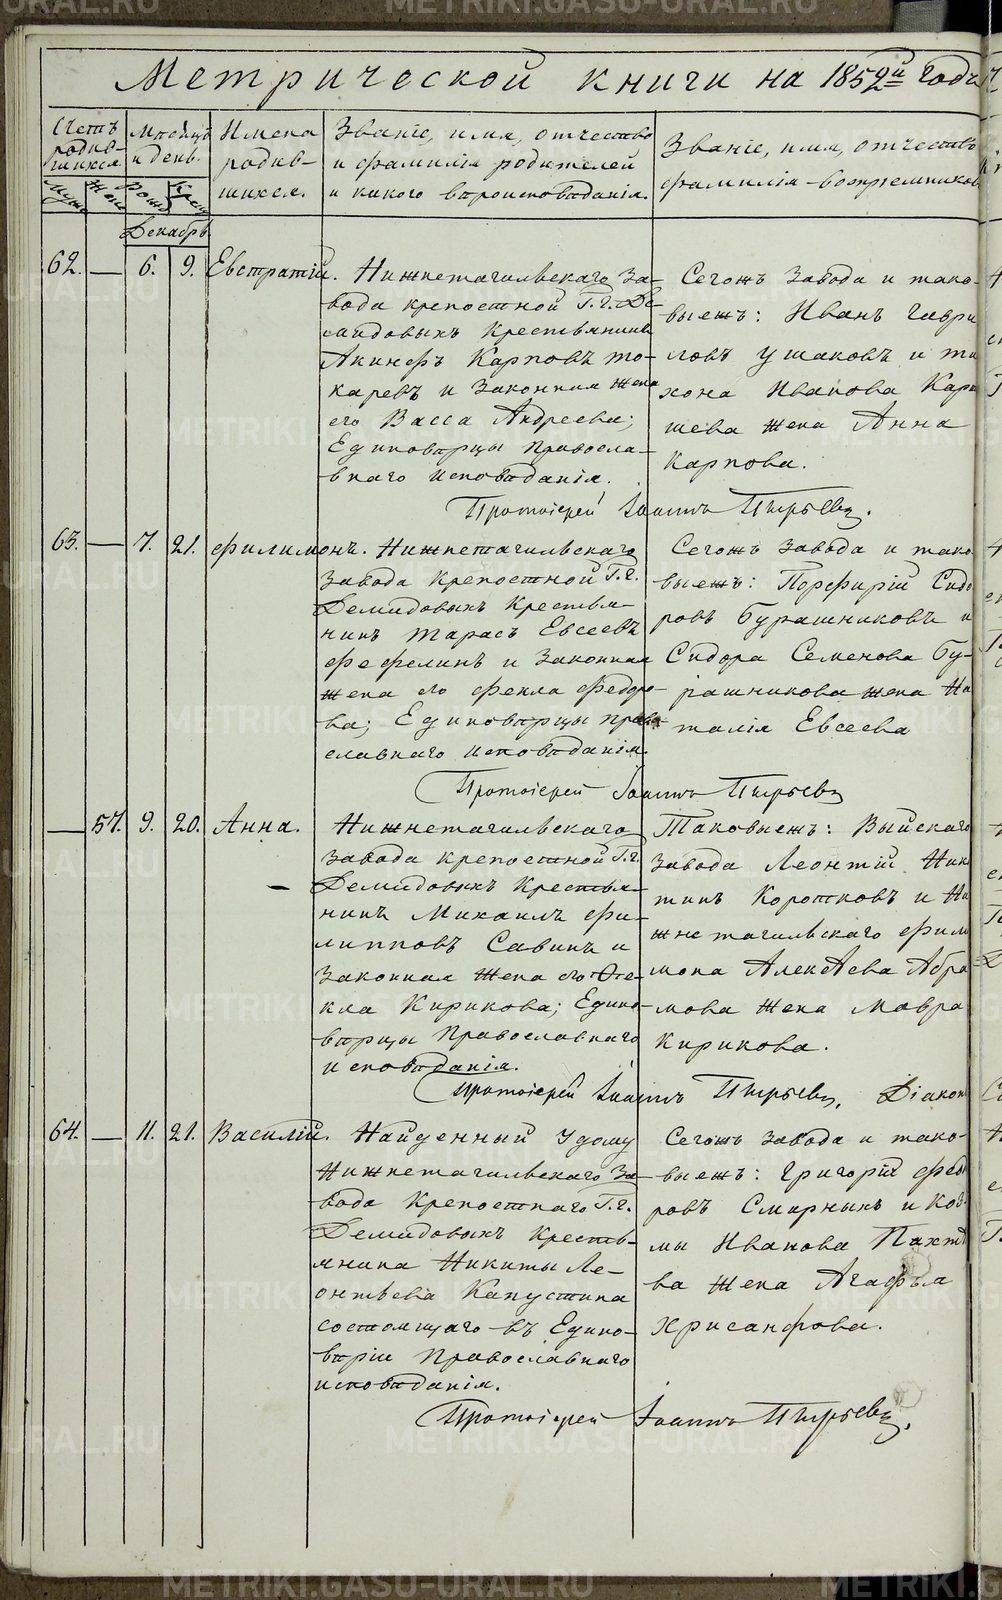 Метрической книги на 1852й годъ
Счетъ родив-шихся
Мѣсяцъ и день.
Имена родив-шихся.
Званіе, имя, отчество
и фамилія родителей
и какого вѣроисповѣданія.
Званіе, имя, отчество
фамилія воспріемниковъ
Декабрь
62. — 6. 9. Евстратій.
Нижнетагильскаго за-
вода крепостной Г.г. Де-
мидовыхъ Крестьянинъ
Акинфъ Карповъ То-
каревъ и Законная жена
его Васса Андреева;
Единовѣрцы Правосла-
внаго исповѣданія.
Сегожъ Завода и тако-
выежъ: Иванъ Гаври
ловъ Ушаковъ и Ти
хона Иванова Кар
шева жена Анна
Карпова.
Протоіерей Іоаннъ Пырьевъ.
63. — 7. 21. Филимонъ.
Нижнетагильскаго
Завода Крепостной Г.г.
Демидовыхъ Крестья-
нинъ Тарасъ Евсеевъ
Фефелинъ и Законная
жена его Фекла Федоро-
ва; Единовѣрцы Право-
славнаго исповѣданія.
Сегожъ Завода и тако
выежъ: Порфирій Сидо
ровъ Бурашниковъ и
Сидора Семенова Бу-
рашникова жена На
талія Евсеева
Протоіерей Іоаннъ Пырьевъ
— 57. 9. 20. Анна.
Нижнетагильскаго
Завода Крепостной Г.г.
Демидовыхъ Крестья-
нинъ Михаилъ Фи-
липповъ Савинъ и
Законная жена его Фе-
кла Кирикова; Едино-
вѣрцы Православнаго
исповѣданія.
Таковыежъ: Выйскаго
Завода Леонтій Ники
тинъ Коротковъ и Ни
жнетагильскаго Фили
мона Алексѣева Абра
мова жена Мавра
Кирикова.
Протоіерей Іоаннъ Пырьевъ. Діаконъ
64. — 11. 21. Василій.
Найденный у дому
Нижнетагильскаго За
вода Крепостнаго Г.г.
Демидовыхъ Кресть-
янина Никиты Ле-
онтьева Капустина
состоящаго въ Едино-
вѣріи Православнаго
исповѣданія.
Сегожъ Завода и тако-
выежъ: Григорій Федо
ровъ Смирныхъ и Коз
мы Иванова
ва жена Агафья
Хрисанфова.
Протоіерей Іоаннъ Пырьевъ.
METRIKI.GASO-URAL.RU